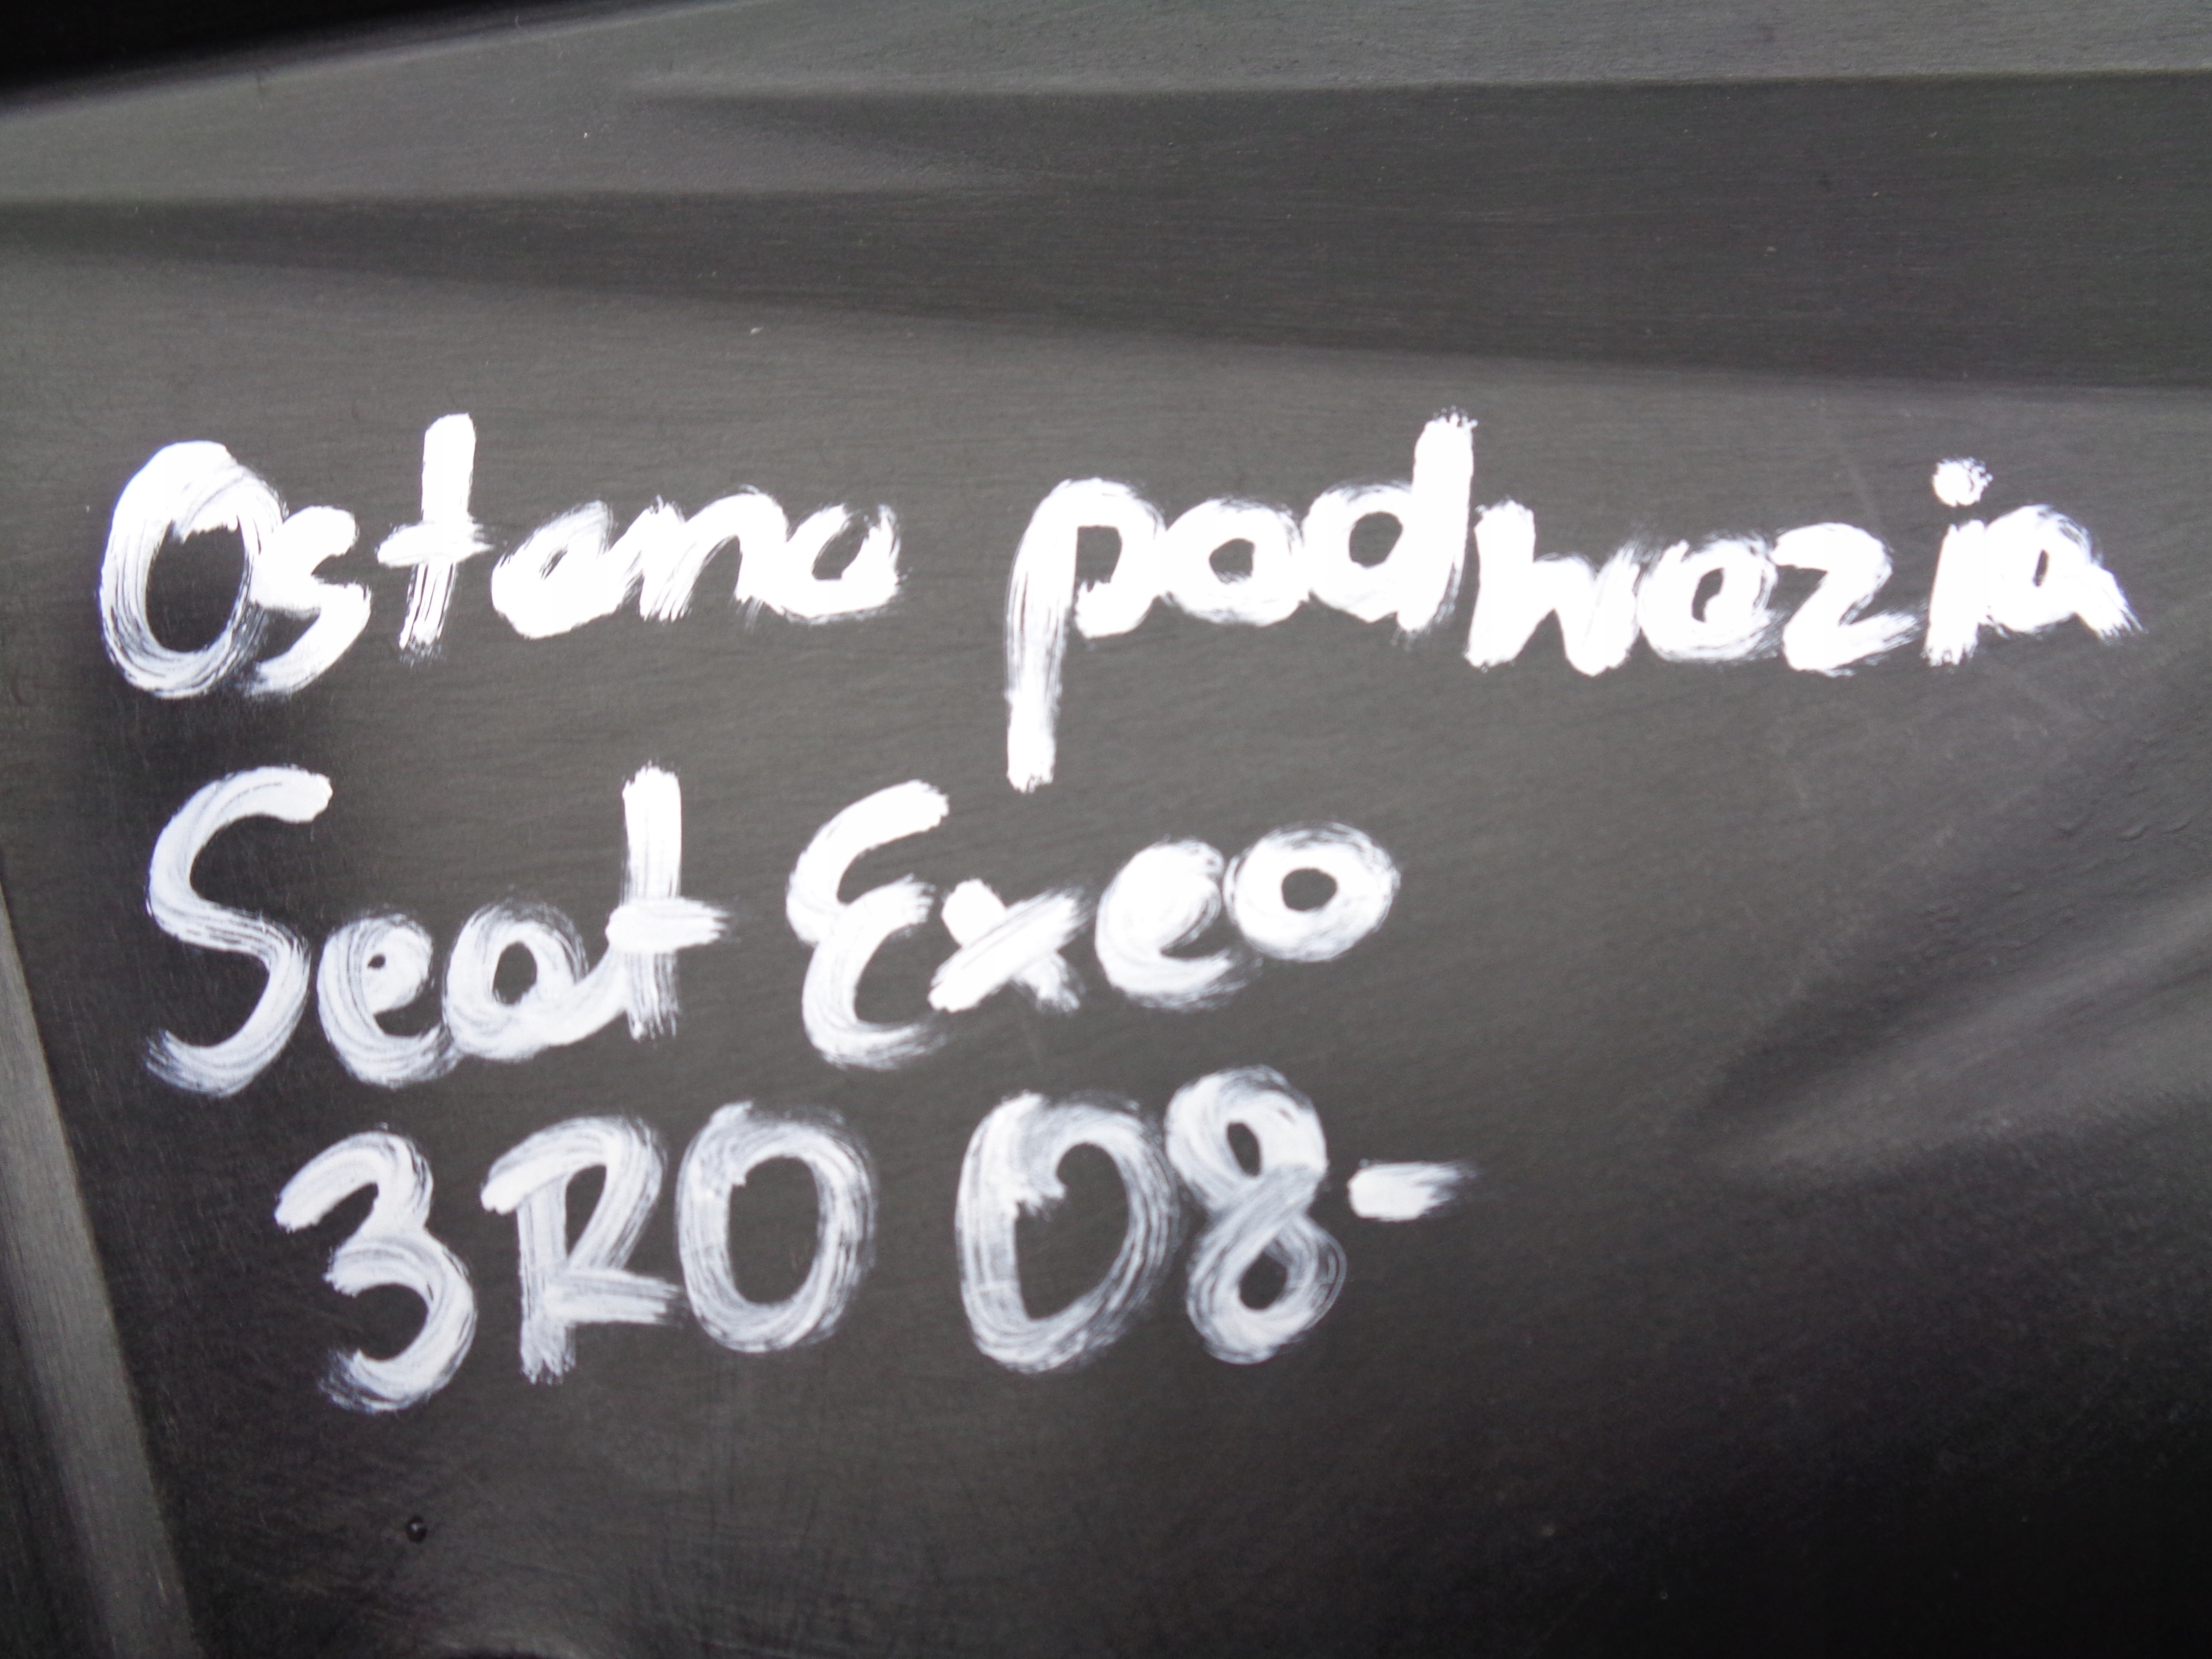 Osłona podwozia
Seat Exeo
3R0 08-